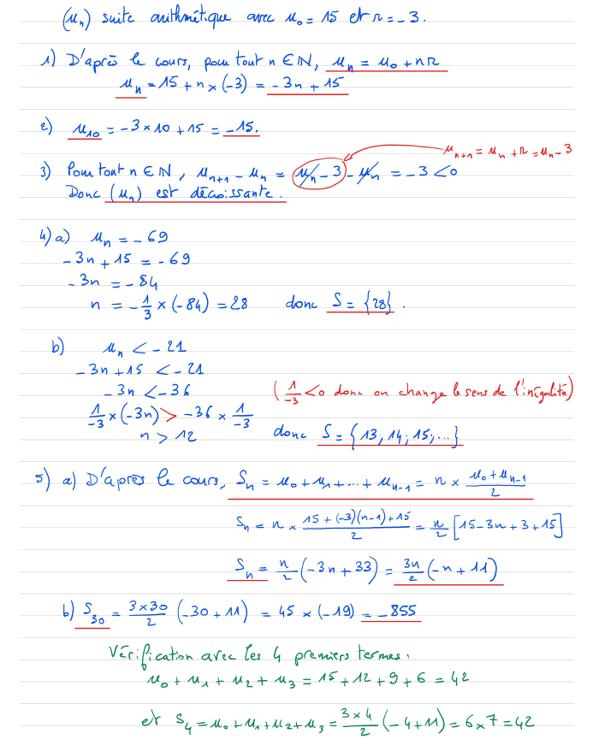 (uₙ) suite arithmétique avec u₀ = 15 et r = -3.
1) D'après le cours, pour tout n ∈ ℕ, uₙ = u₀ + nr
uₙ = 15 + n × (-3) = -3n + 15
2) u₁₀ = -3×10 + 15 = -15.
uₙ₊₁ = uₙ + r = uₙ - 3
3) Pour tout n ∈ ℕ, uₙ₊₁ - uₙ = uₙ - 3 - uₙ = -3 < 0
Donc (uₙ) est décroissante.
4) a) uₙ = -69
-3n + 15 = -69
-3n = -84
n = -1/3 × (-84) = 28 donc S = {28}.
b) uₙ < -21
-3n + 15 < -21
-3n < -36 (1/-3 < 0 donc on change le sens de l'inégalité)
1/-3 × (-3n) > -36 × 1/-3
n > 12 donc S = {13, 14, 15, ...}
5) a) D'après le cours, Sₙ = u₀ + u₁ + ... + uₙ₋₁ = n × (u₀ + uₙ₋₁)/2
Sₙ = n × (15 + (-3)(n-1) + 15)/2 = n/2 [15 - 3n + 3 + 15]
Sₙ = n/2 (-3n + 33) = 3n/2 (-n + 11)
b) S₃₀ = (3×30)/2 (-30 + 11) = 45 × (-19) = -855
Vérification avec les 4 premiers termes :
u₀ + u₁ + u₂ + u₃ = 15 + 12 + 9 + 6 = 42
et S₄ = u₀ + u₁ + u₂ + u₃ = (3×4)/2 (-4 + 11) = 6×7 = 42